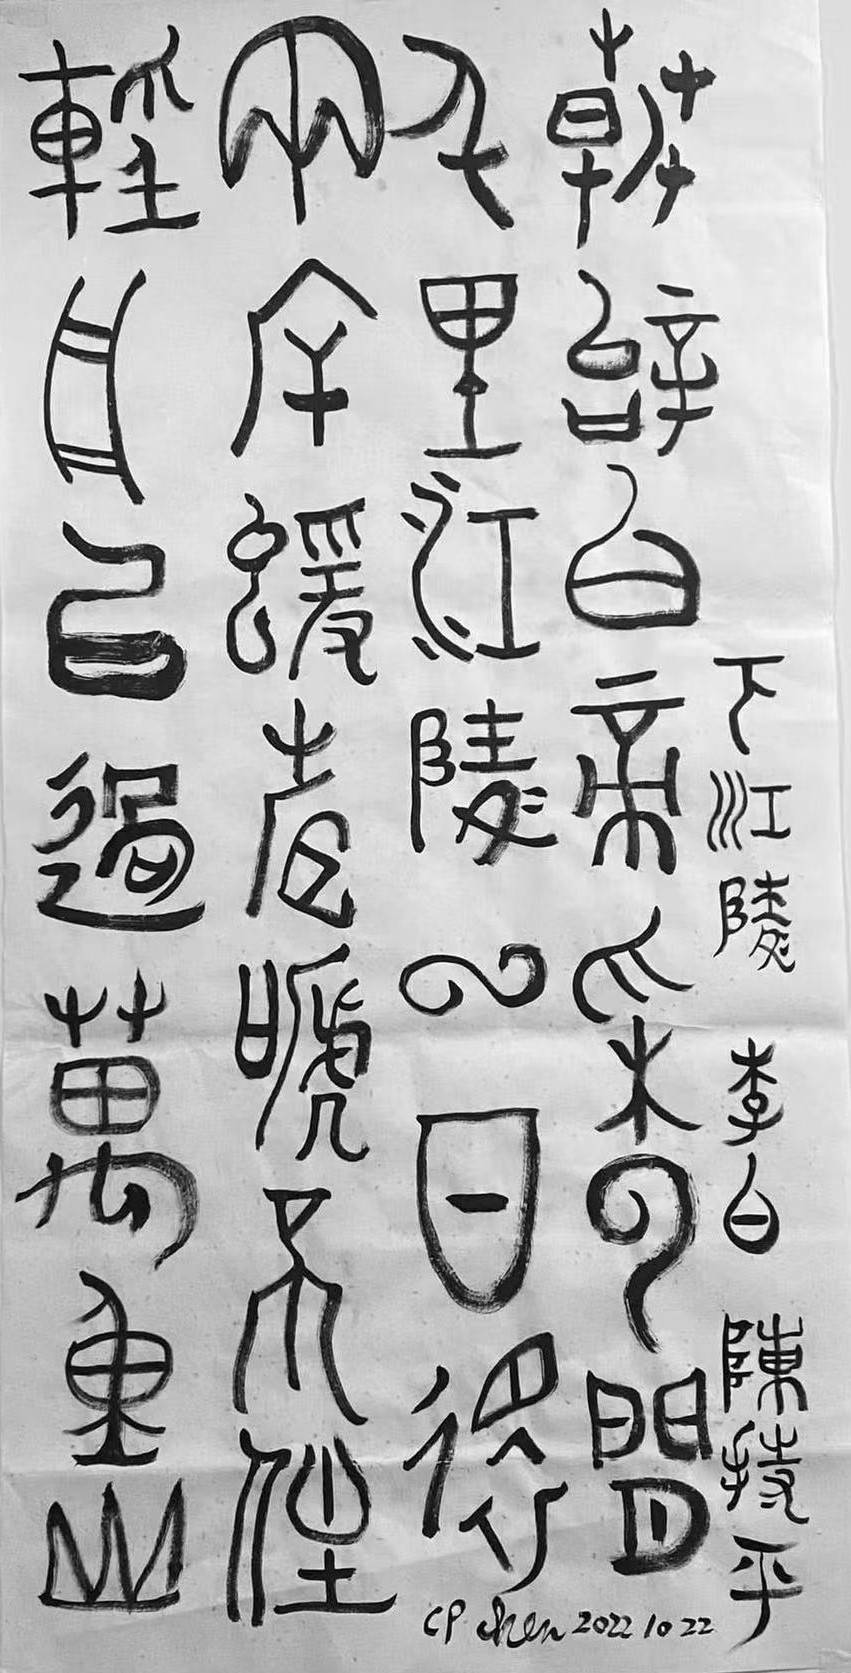 下江陵 李白 陳持平
朝辭白帝采云間
千里江陵一日還
兩岸蝯声嗁不住
輕舟已過萬重山
CP chen 2022 10 22